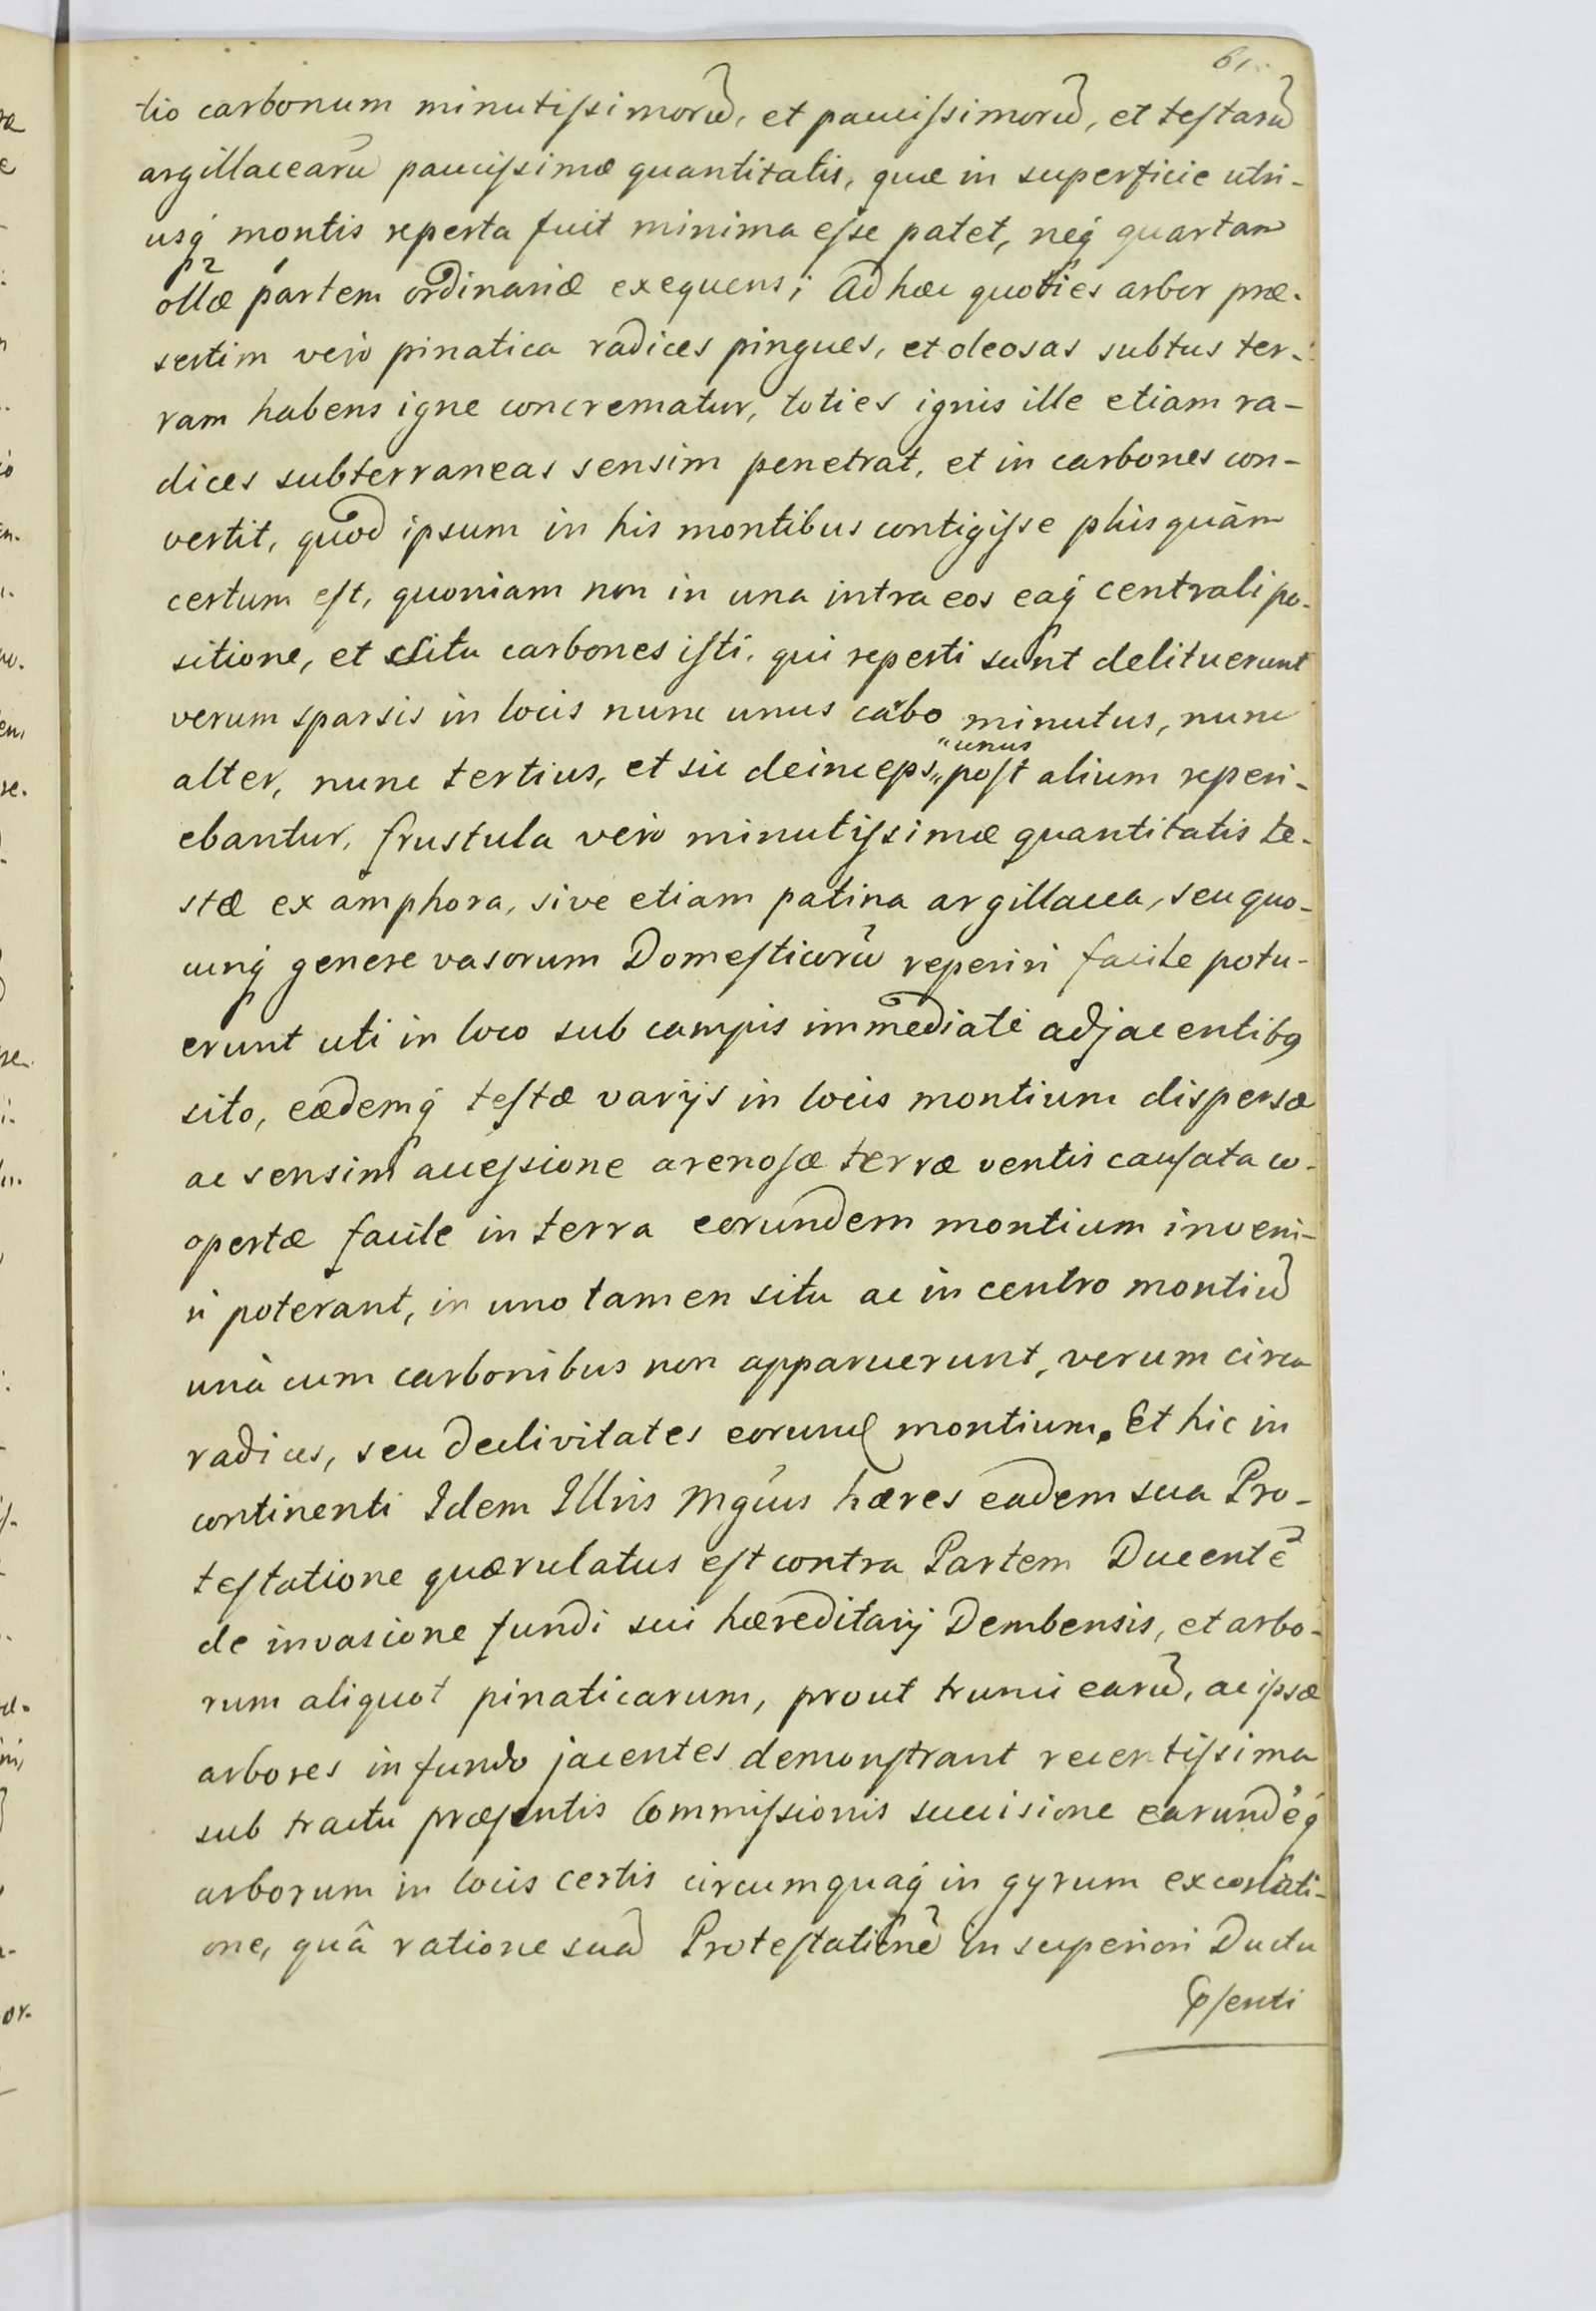 61.
tio carbonum minutissimorũ, et paucissimorũ, et testarũ
argillacearũ paucissimæ quantitatis, quæ in superficie utri-
usq́ montis reperta fuit minima esse patet, neq́ quartam
ollæ partem ordinariæ exequens; Ad hæc quoties arbor præ-
sertim verò pinatica radices pingues, et oleosas subtus ter-
ram habens igne concrematur, toties ignis ille etiam ra-
dices subterraneas sensim penetrat, et in carbones con-
vertit, quod ipsum in his montibus contigisse plus quàm
certum est, quoniam non in una intra eos eaq́ centrali po-
sitione, et situ carbones isti, qui reperti sunt delituerunt
verum sparsis in locis nunc unus cabo minutus, nunc
alter, nunc tertius, et sic deinceps „unus„ post alium reperi-
ebantur, frustula verò minutissimæ quantitatis te-
stæ ex amphora, sive etiam patina argillacea, seu quo-
cunq́ genere vasorum Domesticorũ reperiri facile potu-
erunt uti in loco sub campis immediatè adjacentibꝰ
sito, eædemq́ testæ varijs in locis montium dispersæ
ac sensim accessione arenosæ terræ ventis causata co-
opertæ facile in terra eorundem montium inveni-
ri poterant, in uno tamen situ ac in centro montiũ
unà cum carbonibus non apparuerunt, verum circa
radices, seu declivitates eorund montium. Et hic in
continenti Idem Illris Mgũus hæres eadem sua Pro-
testatione quærulatus est contra Partem Ducentẽ
de invasione fundi sui hæreditarij Dembensis, et arbo-
rum aliquot pinaticarum, prout trunci earũ, ac ipsæ
arbores in fundo jacentes demonstrant recentissima
sub tractu præsentis Commissionis succisione earundẽq́
arborum in locis certis circumquaq́ in gyrum excorticati-
one, quâ ratione suã Protestationẽ in superiori Ductu